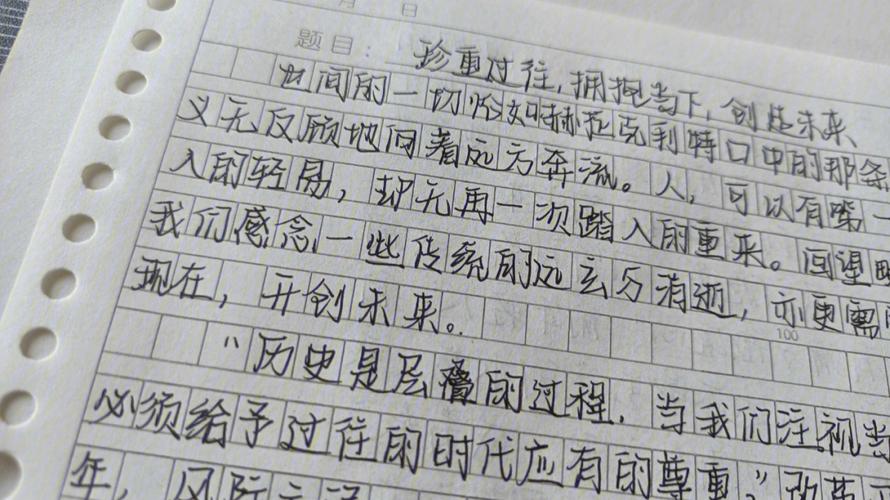 月 日
题目: 珍重过往,拥抱当下,创造未来
世间的一切恰如赫拉克利特口中的那条
义无反顾地向着远方奔流。人,可以有踏一
入的轻易,却无再一次踏入的重来。回望
我们感念一些传统的远去与消逝,亦更需
现在,开创未来。
100
“历史是层叠的过程,当我们注视当
必须给予过往的时代应有的尊重。”
年,风